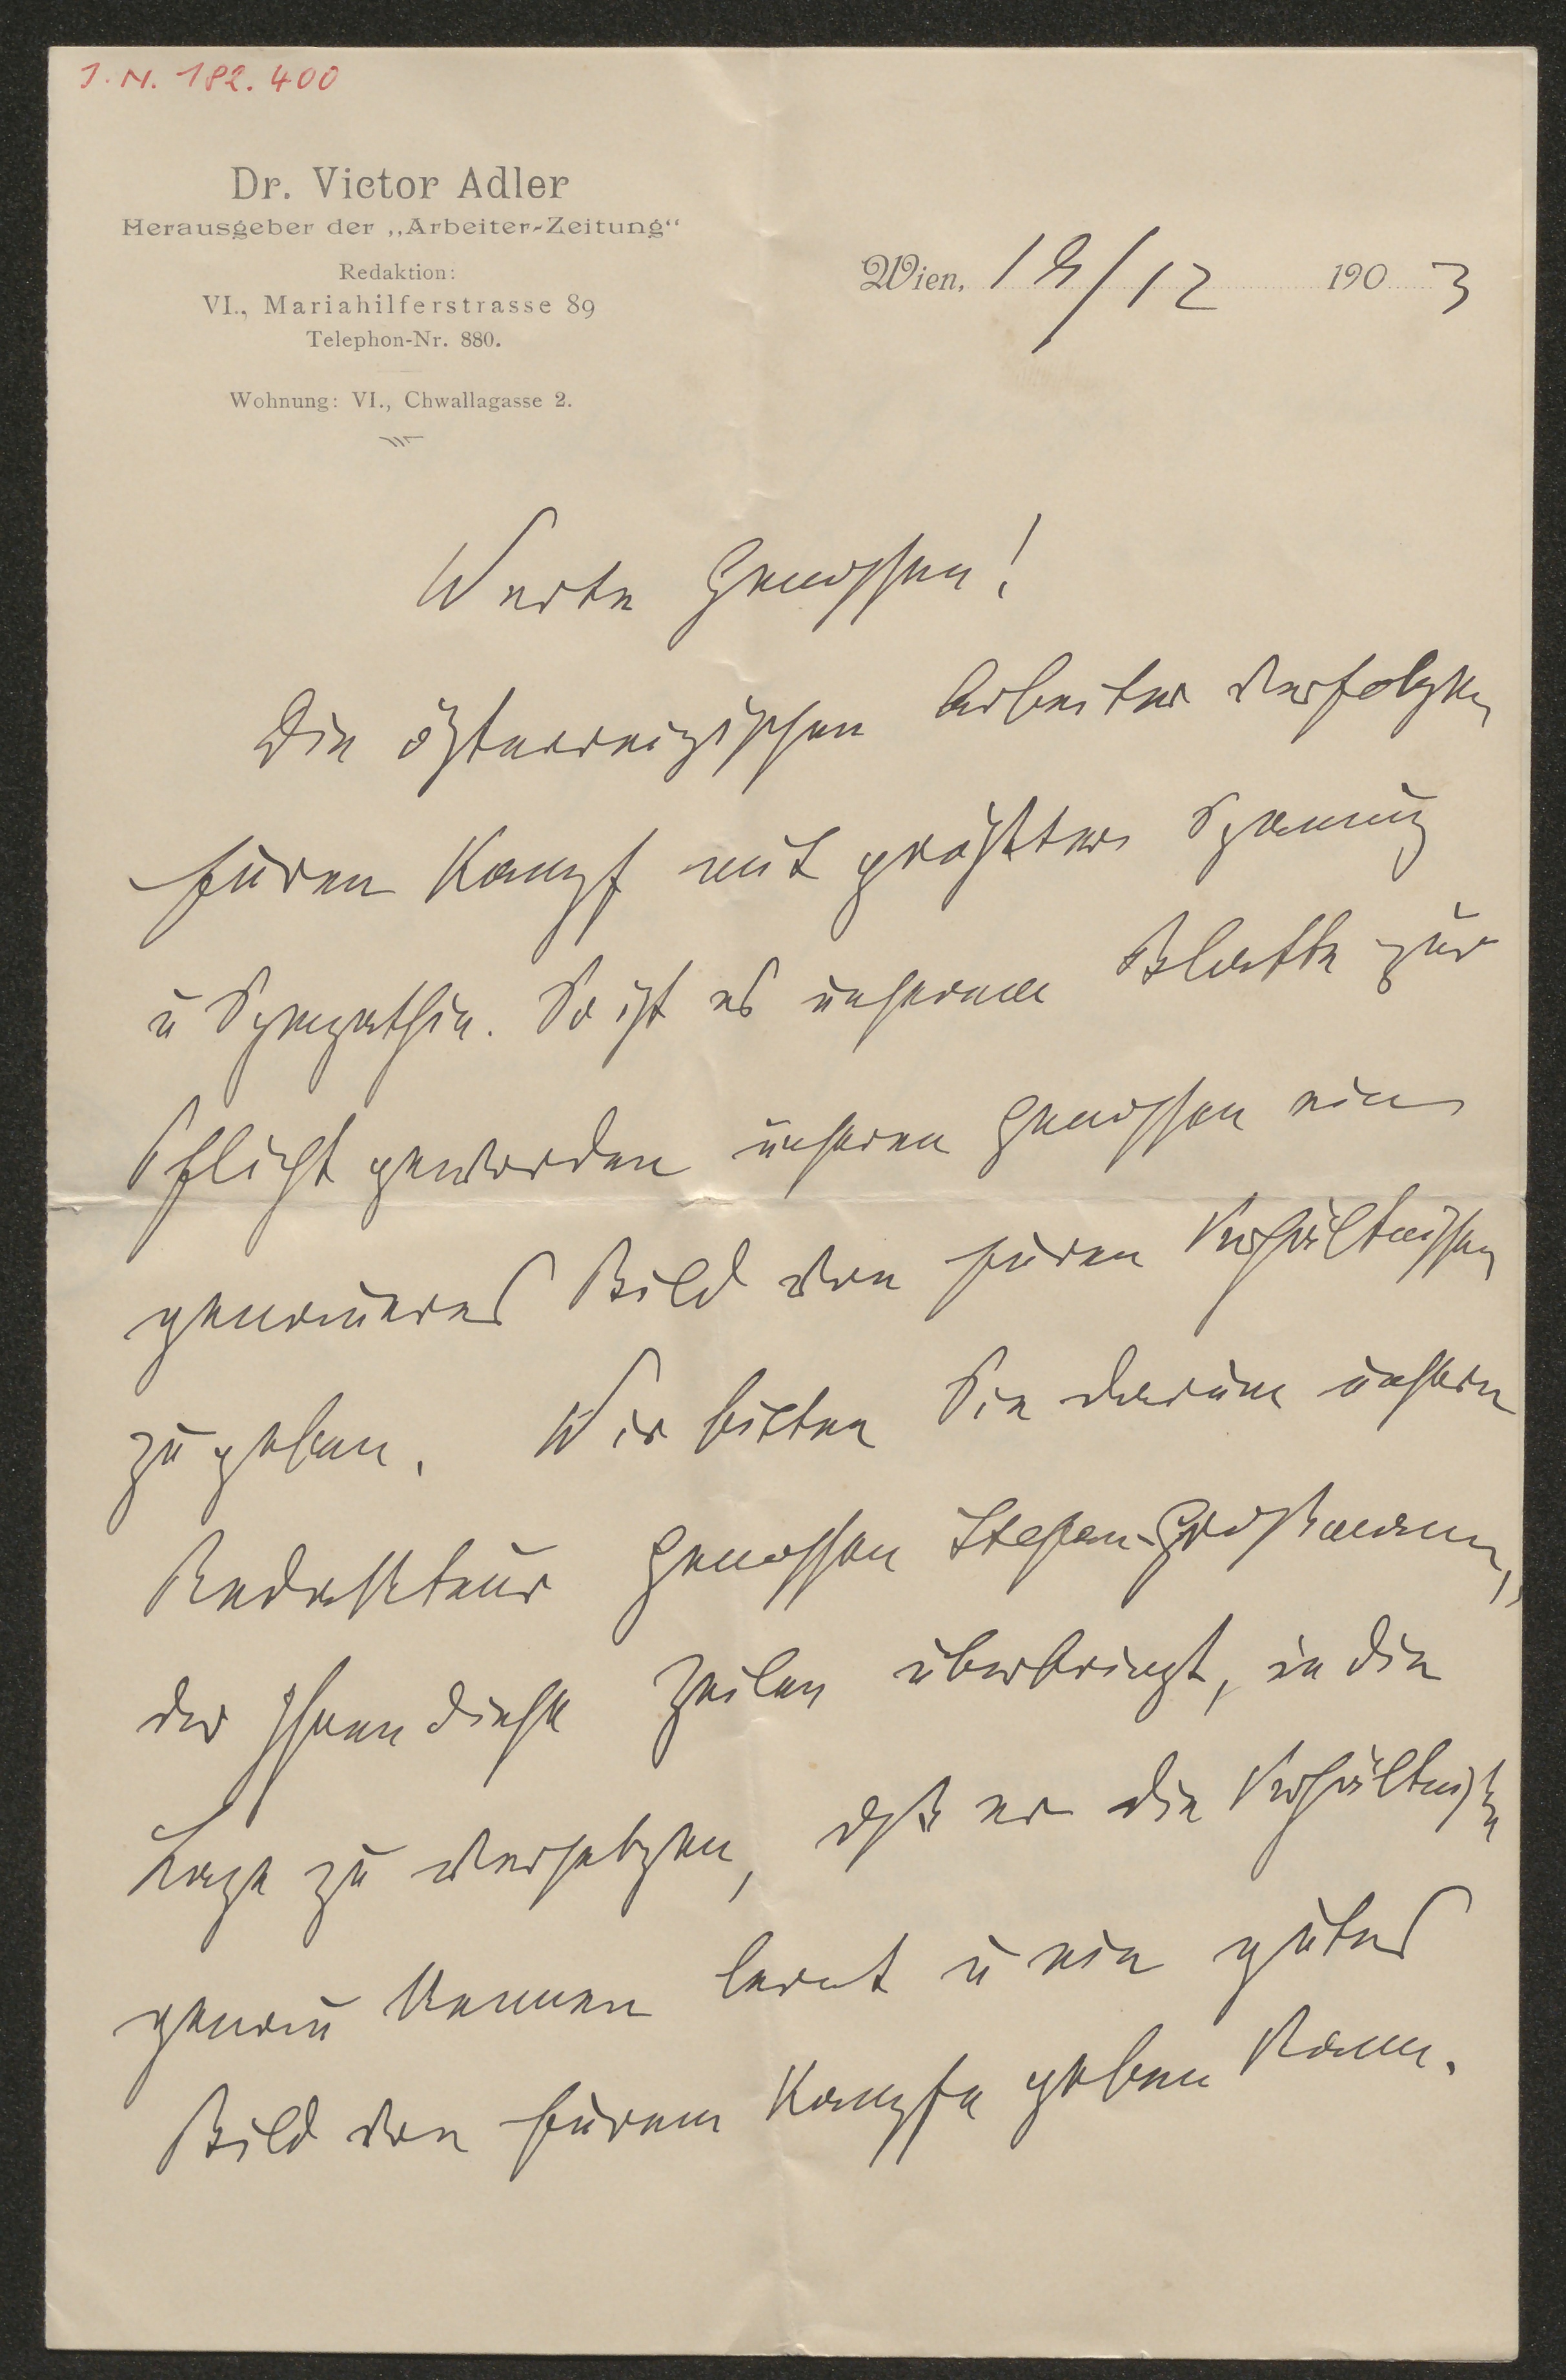 J. N. 182.400
Dr. Victor Adler
Herausgeber der „Arbeiter-Zeitung“
Redaktion:
VI., Mariahilferstrasse 89
Telephon-Nr. 880.
Wohnung: VI., Chwallagasse 2.
Wien, 19/12 1903
Werte Genossen!
Die österreichischen Arbeiter verfolgen
Euren Kampf mit größter Spannung
u Sympathie. So ist es unserem Blatte zur
Pflicht geworden unseren Genossen ein
genaueres Bild von Euren Verhältnissen
zu geben. Wir bitten Sie darum unsern
Redakteur Genossen Stefan Großmann,
der Ihnen diese Zeilen überbringt, in die
Lage zu versetzen, daß er die Verhältniße
genau kennen lernt u ein gutes
Bild von Eurem Kampfe geben kann.